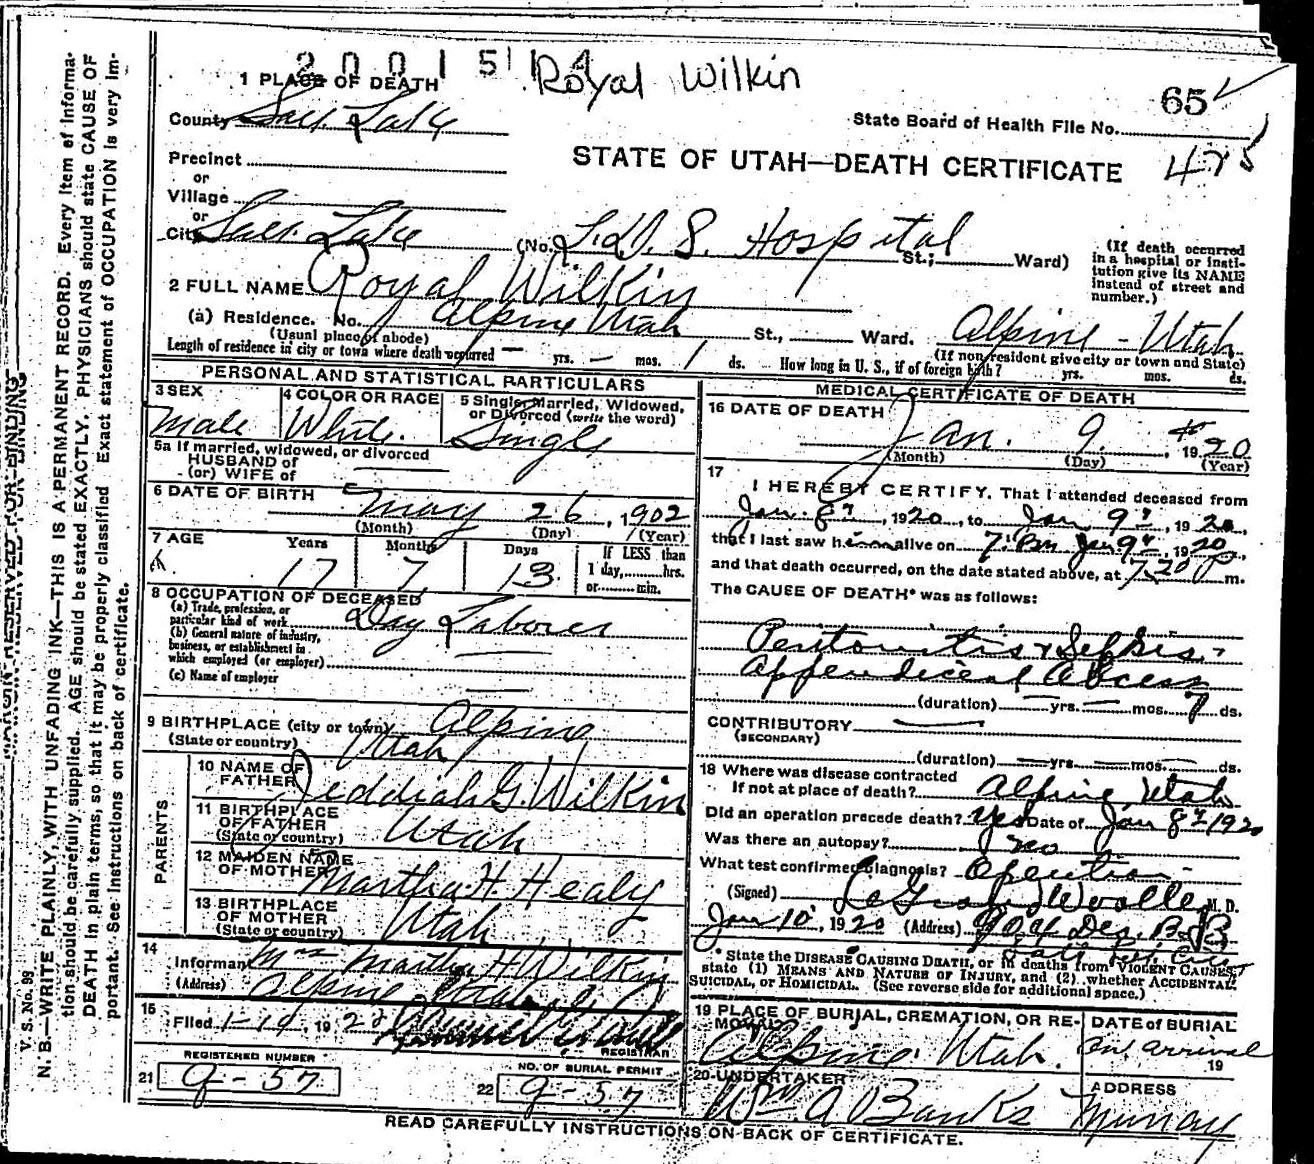 2001514
Royal Wilkin
65
1 PLACE OF DEATH
County Salt Lake
State Board of Health File No.
475
Precinct
or
Village
or
City Salt Lake (No. L. D. S. Hospital St.; Ward)
STATE OF UTAH—DEATH CERTIFICATE
(If death occurred in a hospital or institution give its NAME instead of street and number.)
2 FULL NAME Royal Wilkin
(a) Residence. No. Alpine Utah St., Ward. Alpine - Utah
(Usual place of abode) (If non-resident give city or town and State)
Length of residence in city or town where death occurred — yrs. — mos. 1 ds. How long in U. S., if of foreign birth? yrs. mos. ds.
PERSONAL AND STATISTICAL PARTICULARS
3 SEX Male
4 COLOR OR RACE White.
5 Single, Married, Widowed, or Divorced (write the word) Single
5a If married, widowed, or divorced
HUSBAND of
(or) WIFE of
6 DATE OF BIRTH May 26, 1902
(Month) (Day) (Year)
7 AGE Years 17 Months 7 Days 13
If LESS than
1 day, hrs.
or min.
8 OCCUPATION OF DECEASED
(a) Trade, profession, or particular kind of work Day Laborer
(b) General nature of industry, business, or establishment in which employed (or employer)
(c) Name of employer
9 BIRTHPLACE (city or town) Alpine
(State or country) Utah
PARENTS
10 NAME OF FATHER Jeddiah G. Wilkin
11 BIRTHPLACE OF FATHER (State or country) Utah
12 MAIDEN NAME OF MOTHER Martha H. Healy
13 BIRTHPLACE OF MOTHER (State or country) Utah
14
Informant Mrs Martha H Wilkin
(Address) Alpine Utah
15
Filed 192
REGISTRAR
REGISTERED NUMBER
21 9-57
NO. OF BURIAL PERMIT
22 9-57
MEDICAL CERTIFICATE OF DEATH
16 DATE OF DEATH Jan. 9, 1920
(Month) (Day) (Year)
17
I HEREBY CERTIFY, That I attended deceased from
Jan. 8", 1920, to Jan 9", 1920,
that I last saw him alive on 7. Pm Jan 9", 1920,
and that death occurred, on the date stated above, at 7.20 P m.
The CAUSE OF DEATH* was as follows:
Peritonitis & Sepsis.
Appendiceal Abcess
(duration) — yrs. — mos. 7 ds.
CONTRIBUTORY
(SECONDARY)
(duration) yrs. mos. ds.
18 Where was disease contracted
If not at place of death? Alpine, Utah
Did an operation precede death? Yes Date of Jan 8" 1920
Was there an autopsy? no
What test confirmed diagnosis? Operation
(Signed) LeGrand Woolley M. D.
Jan 10", 1920 (Address) 904 Des. B. B
Salt Lake City
* State the DISEASE CAUSING DEATH, or in deaths from VIOLENT CAUSES, state (1) MEANS AND NATURE OF INJURY, and (2) whether ACCIDENTAL, SUICIDAL, or HOMICIDAL. (See reverse side for additional space.)
19 PLACE OF BURIAL, CREMATION, OR REMOVAL Alpine, Utah.
DATE of BURIAL
on arrival
19
20 UNDERTAKER Wm A Banks
ADDRESS Murray
READ CAREFULLY INSTRUCTIONS ON BACK OF CERTIFICATE.
V. S. No. 99
MARGIN RESERVED FOR BINDING
N. B.—WRITE PLAINLY, WITH UNFADING INK—THIS IS A PERMANENT RECORD. Every Item of Informa-
tion should be carefully supplied. AGE should be stated EXACTLY. PHYSICIANS should state CAUSE OF
DEATH in plain terms, so that it may be properly classified. Exact statement of OCCUPATION is very Im-
portant. See instructions on back of certificate.